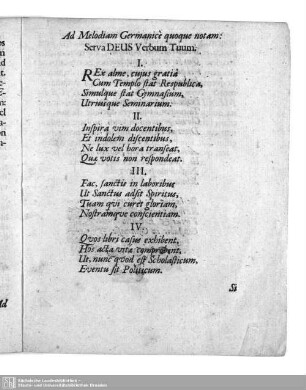 Ad Melodiam Germanicè quoque notam:
Serva DEUS Verbum Tuum:
I.
REx alme, cujus gratiâ
Cum Templo stat Respublica,
Simulque stat Gymnasium,
Utriusque Seminarium:
II.
Inspira vim docentibus,
Et indolem discentibus,
Ne lux vel hora transeat,
Quæ votis non respondeat.
III.
Fac, sanctis in laboribus
Ut Sanctus adsit Spiritus,
Tuam qui curet gloriam,
Nostramque conscientiam.
IV.
Qvos libri casus exhibent,
Hos acta vita comprobent,
Ut, nunc quod est Scholasticum,
Eventu sit Politicum.
Si
Ad